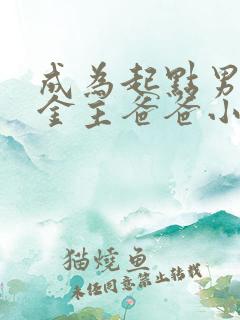 成為起點男
金主爸爸小
猫燒鱼
未任同意禁止转载